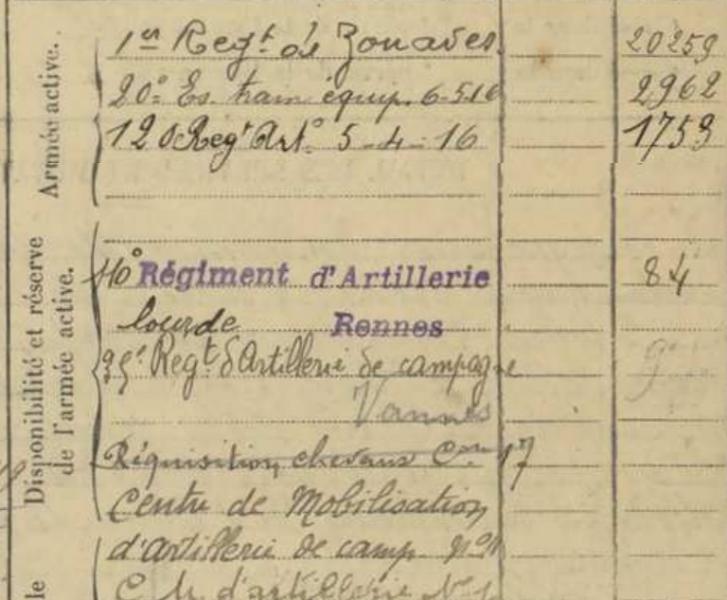 Armée active.
1er Regt de Zouaves 20259
20e Es. train équip. 6-5-16 2962
120 Regt Art. 5-4-16 1753
Disponibilité et réserve
de l'armée active.
Régiment d'Artillerie 84
lourde Rennes
35e Regt d'Artillerie de campagne
Vannes
Réquisition chevaux Con 17
Centre de Mobilisation
d'artillerie de camp.
C. M. d'artillerie